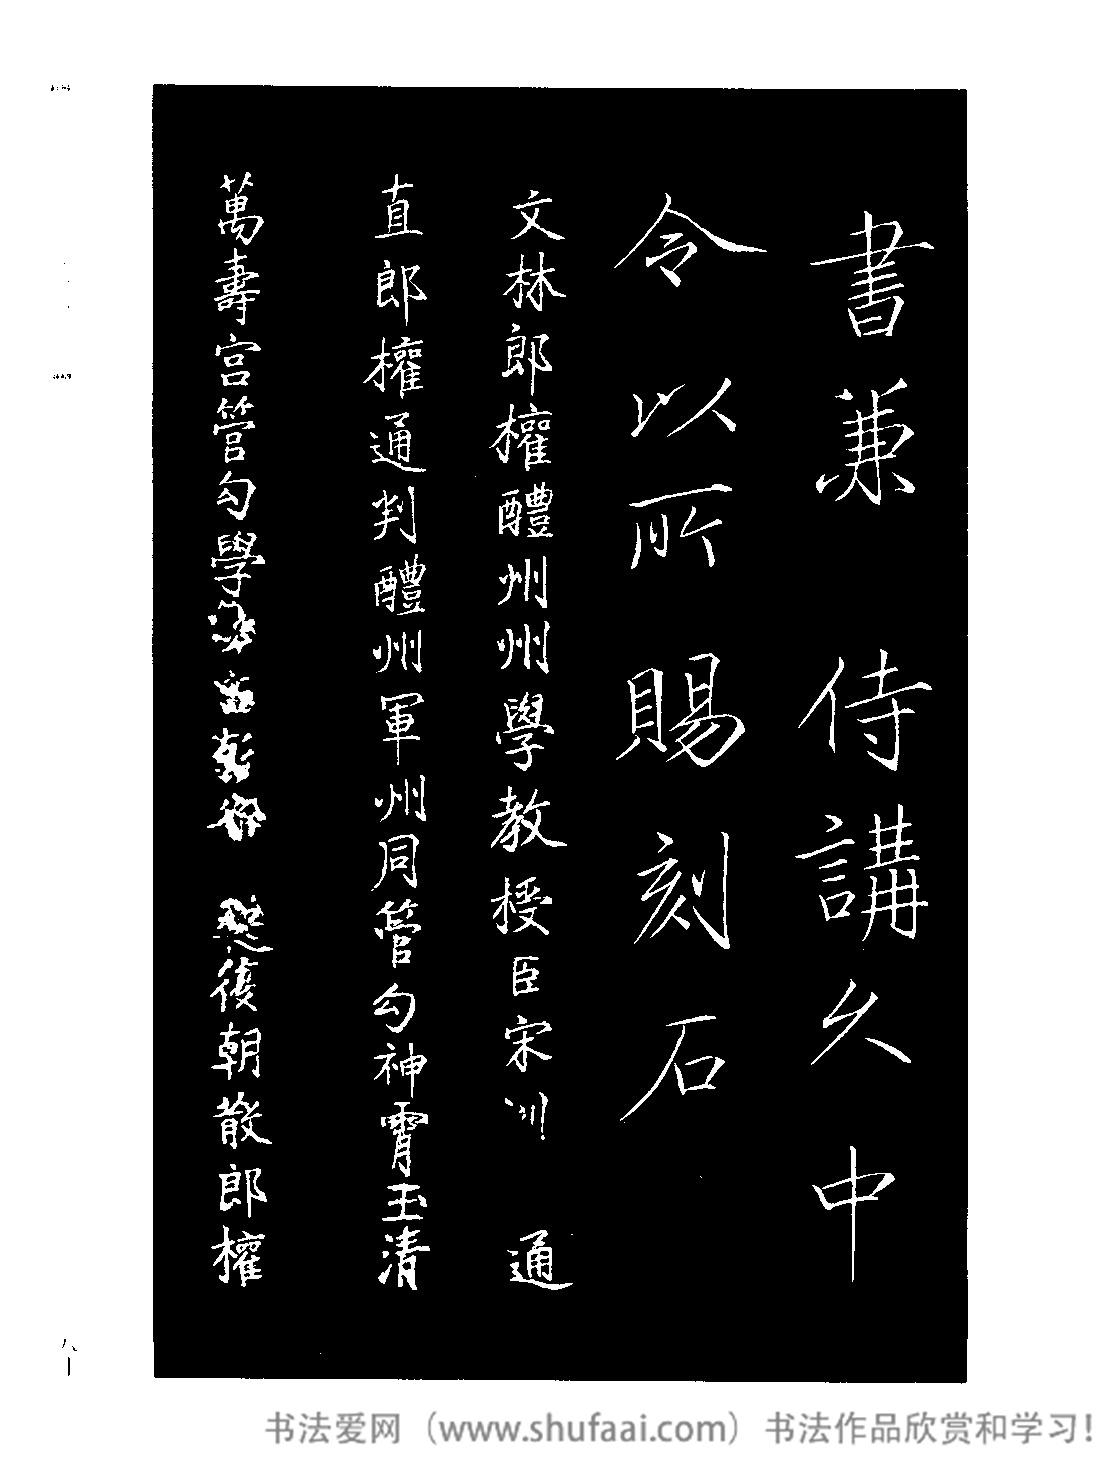 書兼 侍講久中
令以所賜刻石
文林郎權醴州州學教授臣宋 通
直郎權通判醴州軍州同管勾神霄玉清
萬壽宮管勾學 復朝散郎權
八一
书法爱网（www.shufaai.com）书法作品欣赏和学习！